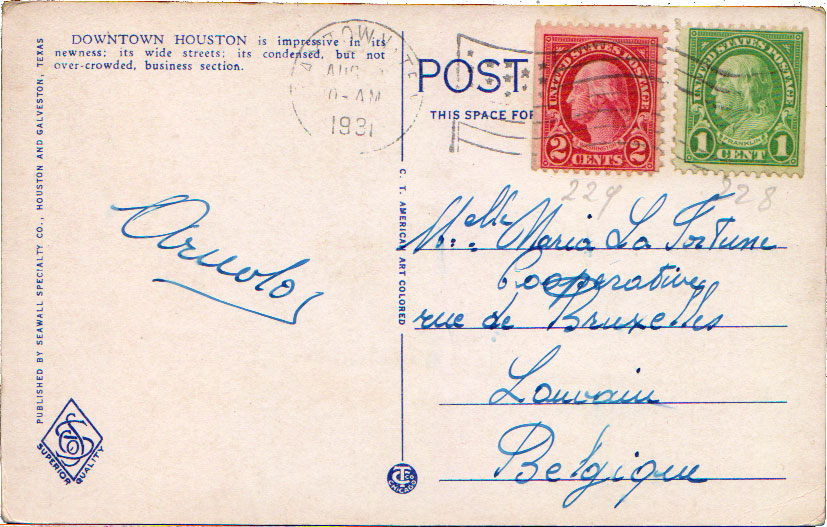 DOWNTOWN HOUSTON is impressive in its
newness; its wide streets; its condensed, but not
over-crowded, business section.
PUBLISHED BY SEAWALL SPECIALTY CO., HOUSTON AND GALVESTON, TEXAS
SUPERIOR QUALITY
Arnold
C. T. AMERICAN ART COLORED
CT CO
CHICAGO
AUG
0-AM
1931
POST
THIS SPACE FOR
UNITED STATES POSTAGE
WASHINGTON
2 CENTS 2
UNITED STATES POSTAGE
FRANKLIN
1 CENT 1
229
228
Melle Maria La Fortune
Cooperative
rue de Bruxelles
Louvain
Belgique